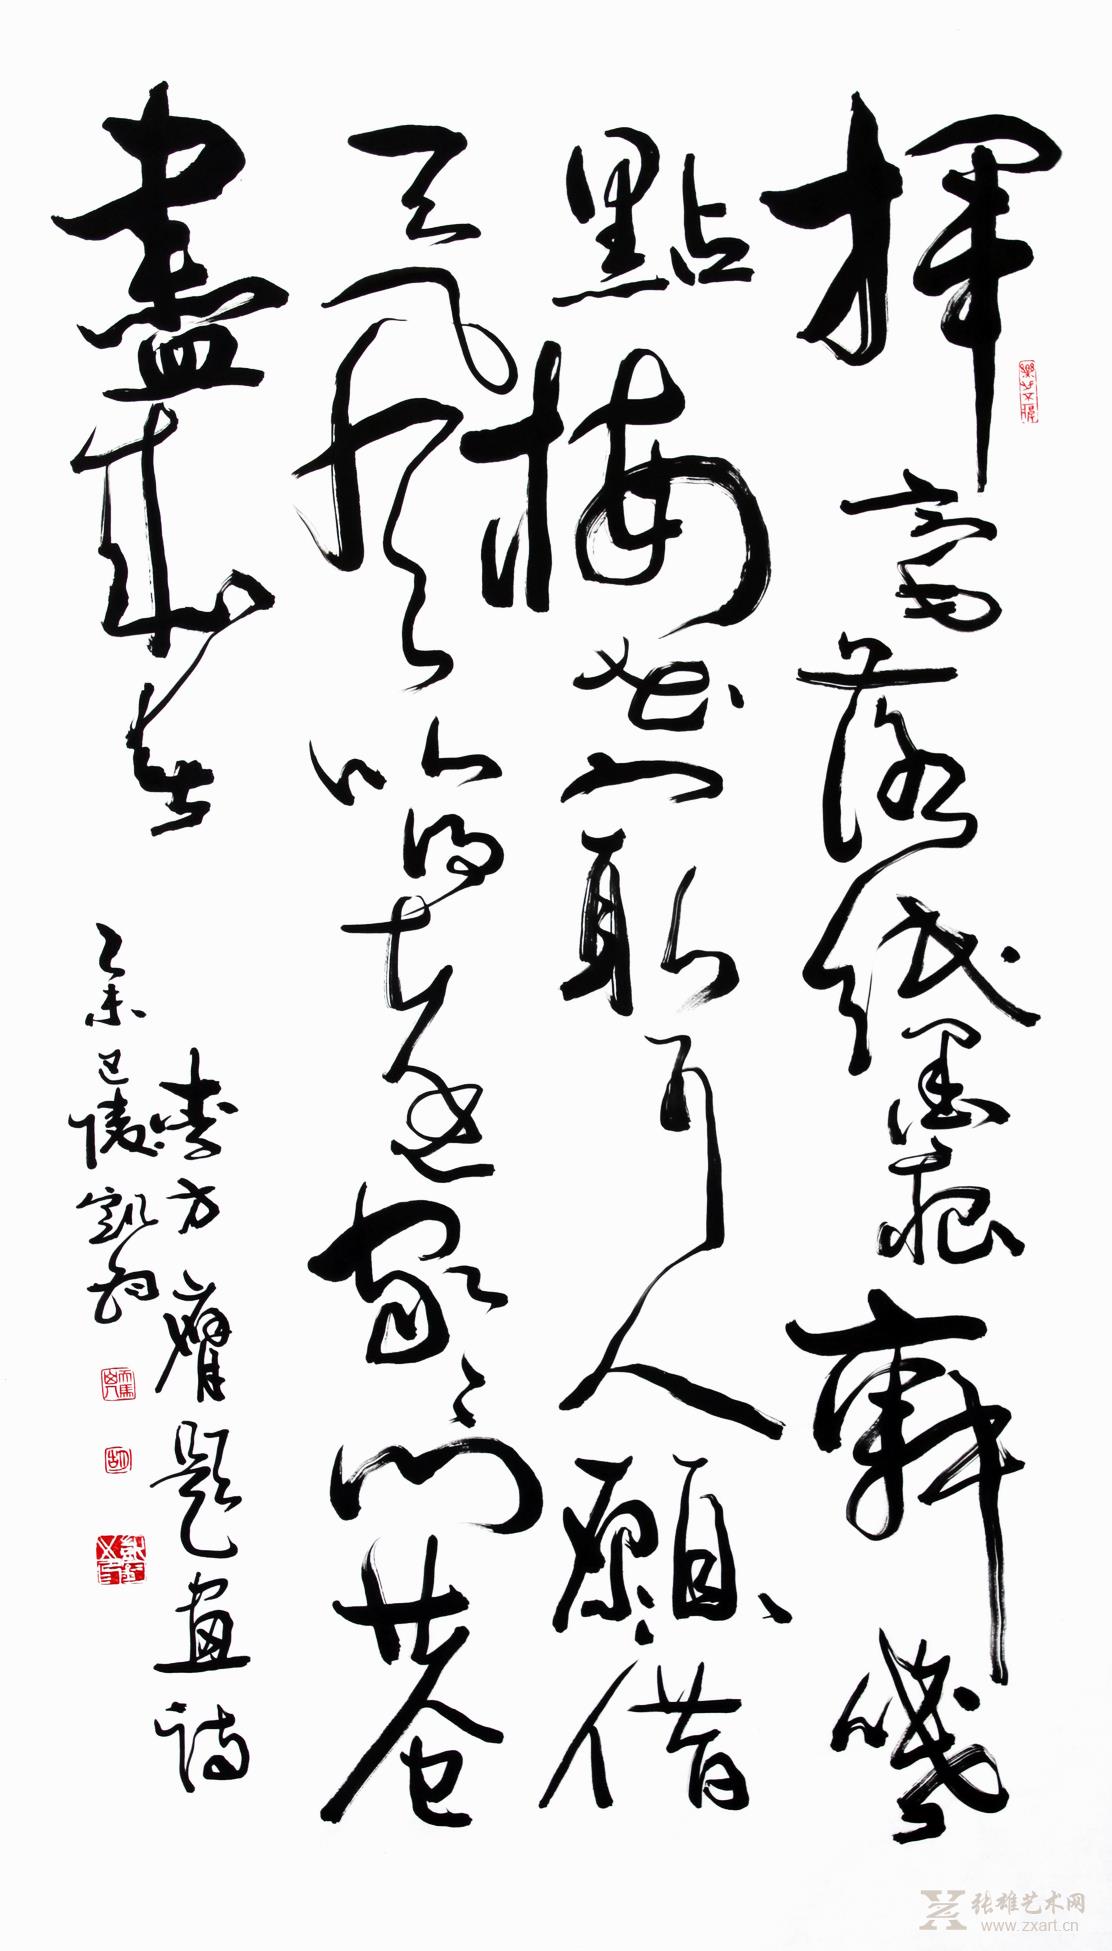 揮毫落紙墨痕新幾
點梅花最可人願借
天風吹得遠家々門巷
盡成春
李方膺題畫詩
乙未巴陵凱
张雄艺术网
www.zxart.cn